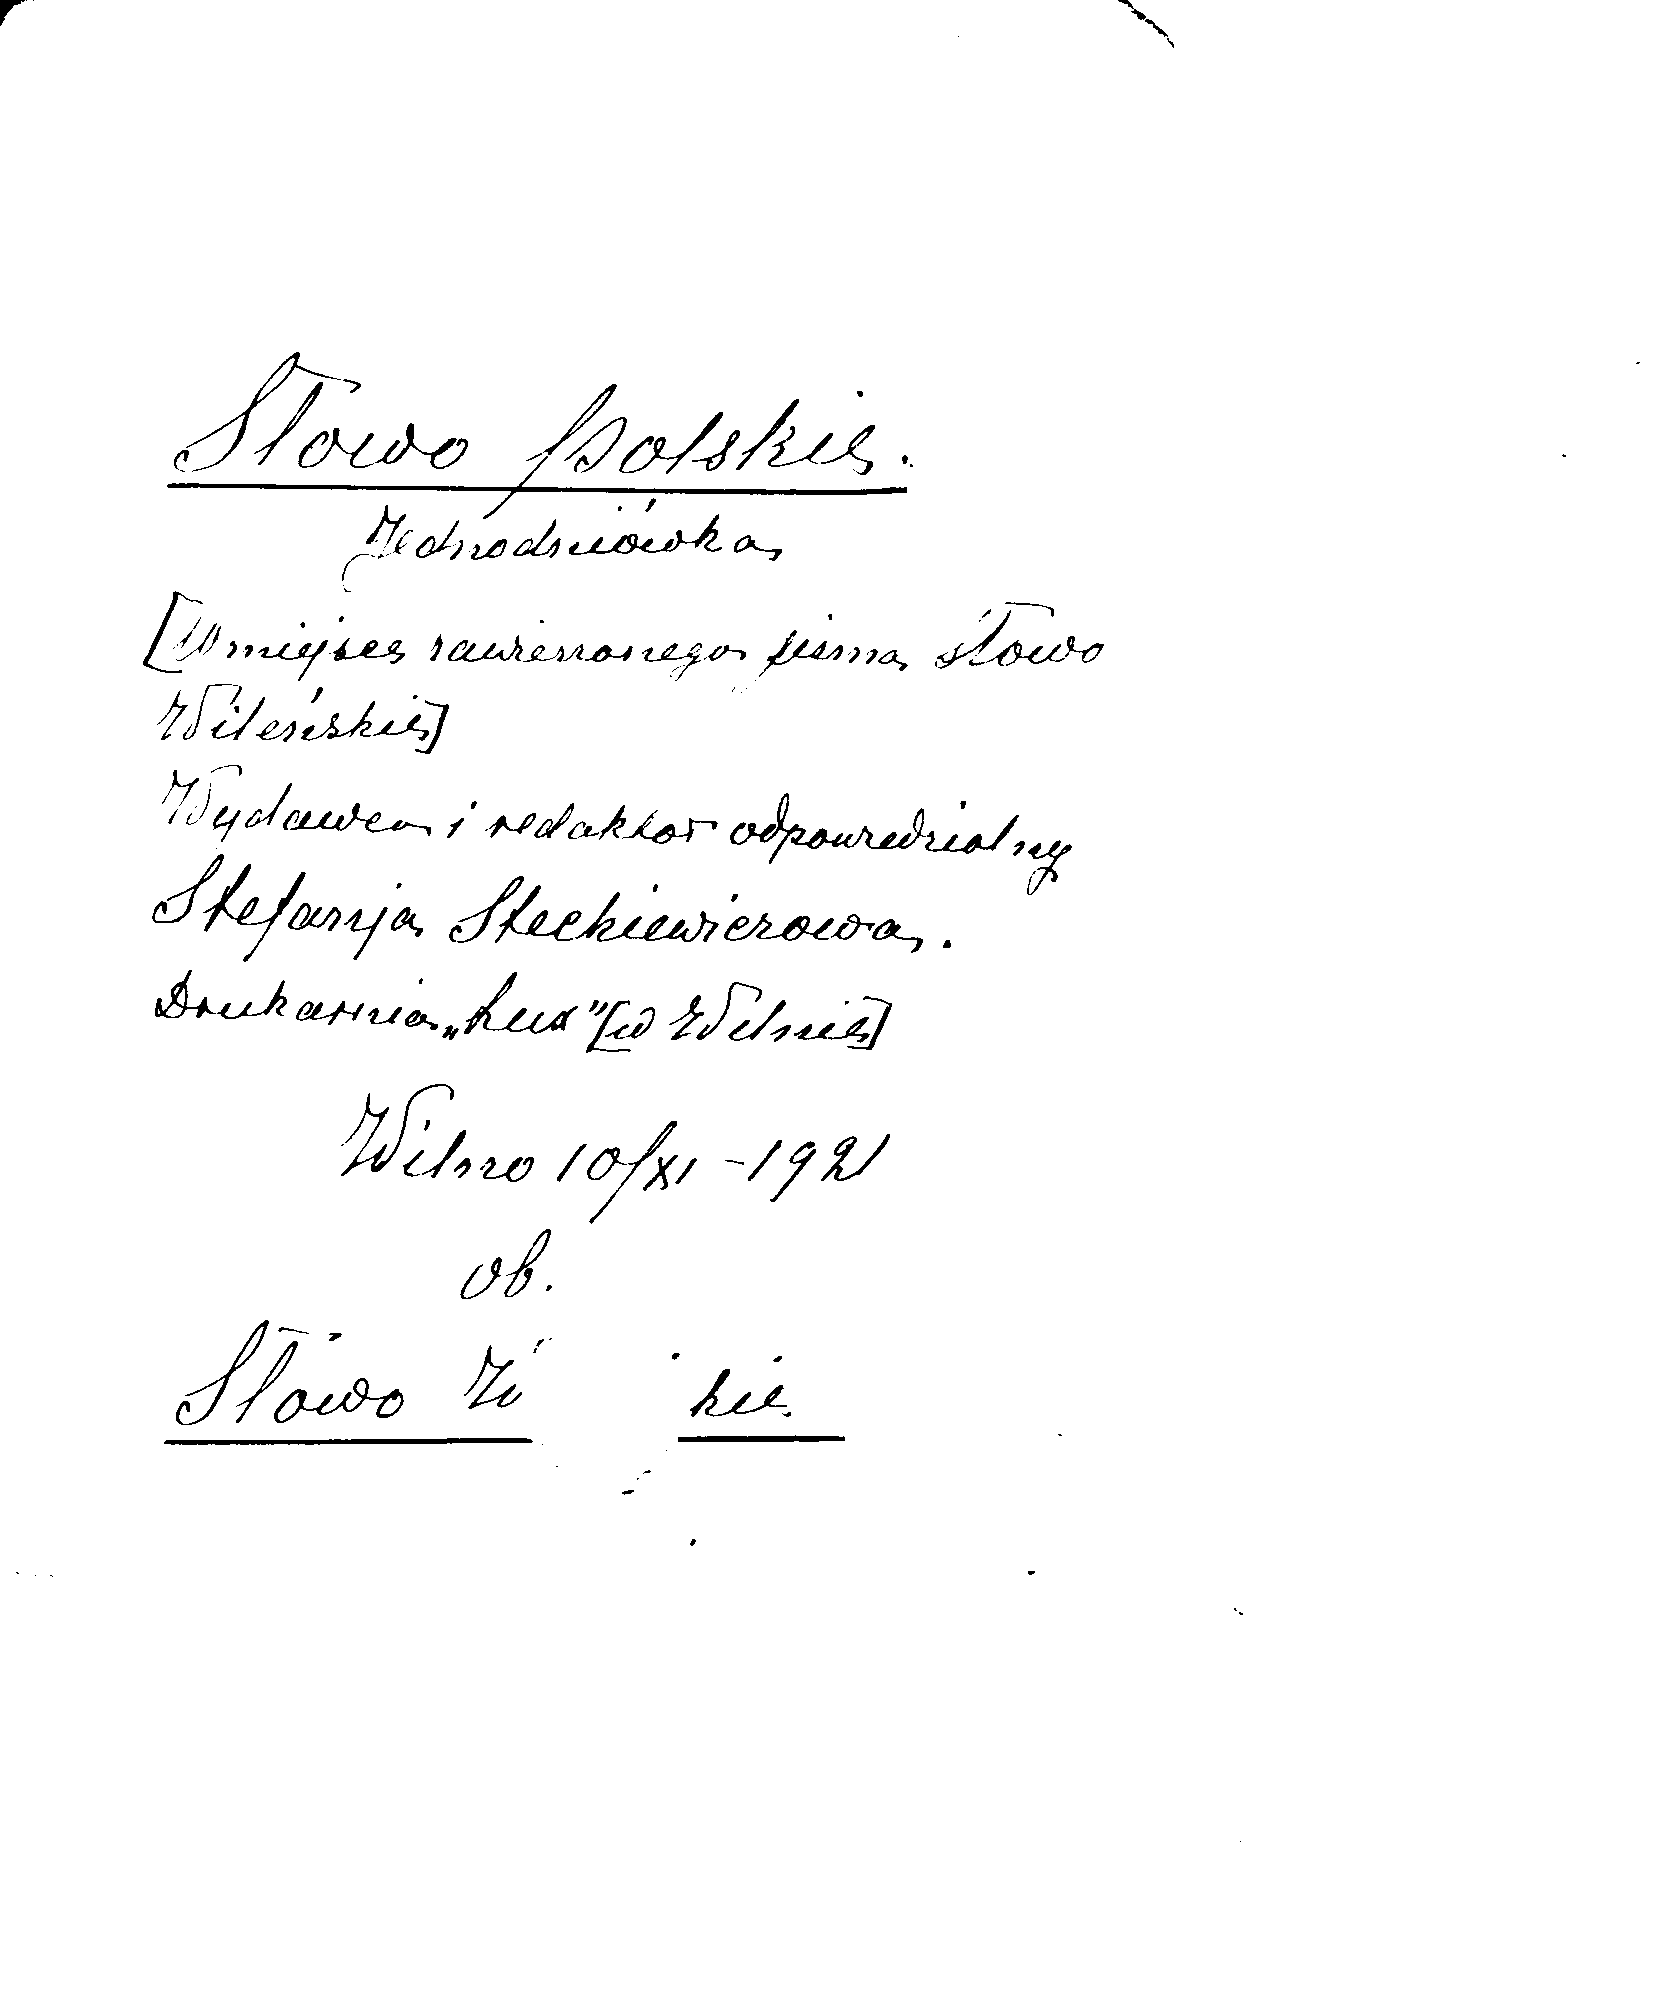 Słowo polskie.
Jednodniówka
[W miejsce zawieszonego pisma Słowo
Wileńskie]
Wydawca i redaktor odpowiedzialny
Stefanja Steckiewiczowa.
Drukarnia „Lux” [w Wilnie]
Wilno 10/XI - 1921
ob.
Słowo kie